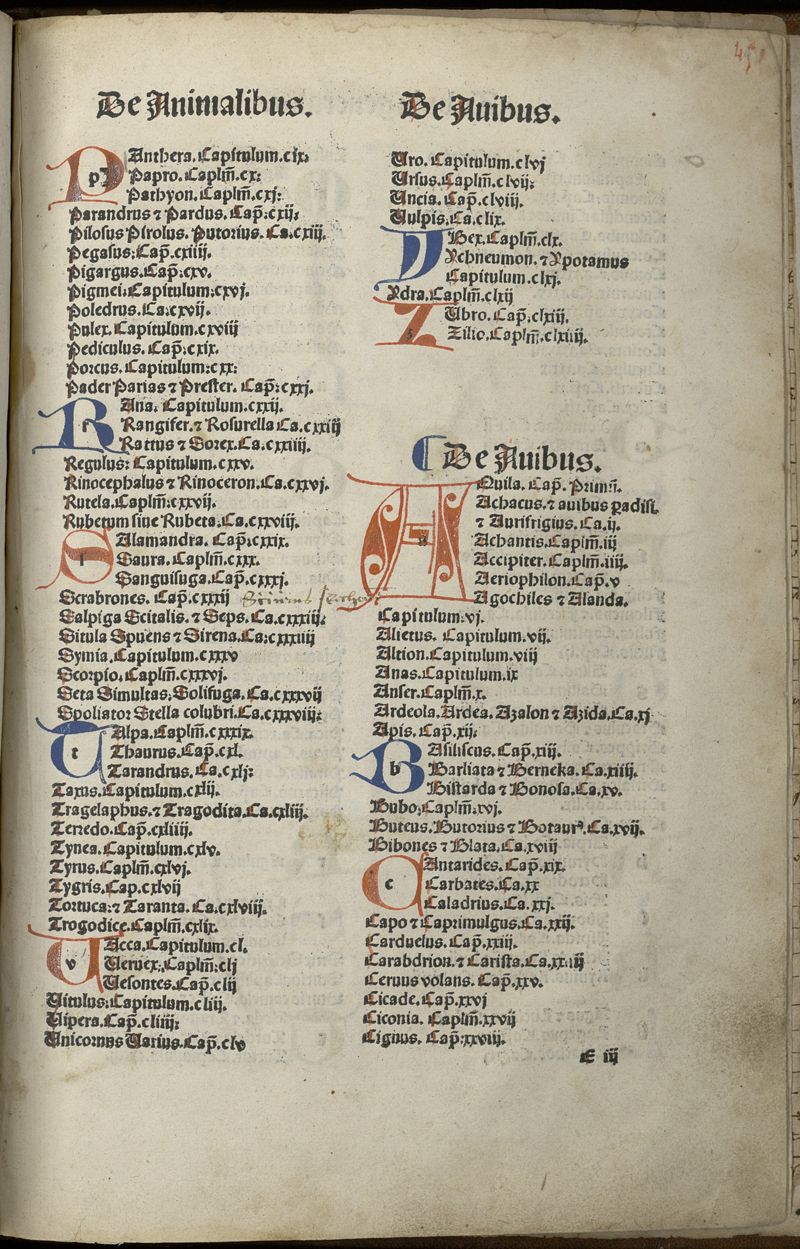 De Animalibus.
PAnthera. Capitulum.cix:
Papro. Caplm̄.cx:
Pathyon. Caplm̄.cxj:
Parandrus ⁊ Pardus. Cap̄.cxij:
Pilosus Pirolus. Putorius. Ca.cxiij.
Pegasus: Cap̄.cxiiij.
Pigargus. Cap̄:cxv.
Pigmei. Capitulum:cxvj.
Poledrus. Ca:cxvij.
Pulex. Capitulum.cxviij
Pediculus. Cap̄:cxix.
Porcus. Capitulum:cxx:
Pader Parias ⁊ Prester. Cap̄:cxxj.
RAna. Capitulum.cxxij.
Rangifer.⁊ Rosurella Ca.cxxiij
Rattus ⁊ Sorex. Ca.cxxiiij.
Regulus: Capitulum.cxxv.
Rinocephalus ⁊ Rinoceron. Ca.cxxvj.
Rutela. Caplm̄:cxxvij.
Rubetum siue Rubeta. Ca.cxxviij.
SAlamandra. Cap̄:cxxix.
Saura. Caplm̄.cxxx.
Sanguisuga. Cap̄.cxxxj.
Scrabrones. Cap̄.cxxxij
Salpiga Scitalis. ⁊ Seps. Ca.cxxxiij:
Situla Spuens ⁊ Sirena. Ca:cxxxiiij
Symia. Capitulum.cxxxv
Scorpio. Caplm̄.cxxxvj.
Seta Simultas. Solifuga. Ca.cxxxvij
Spoliator Stella colubri. Ca.cxxxviij:
TAlpa. Caplm̄.cxxxix.
Thaurus. Cap̄.cxl.
Tarandrus. Ca.cxlj:
Taxus. Capitulum.cxlij.
Tragelaphus.⁊ Tragodita. Ca.cxliij.
Teredo. Cap̄.cxliiij.
Tynea. Capitulum.cxlv.
Tyrus. Caplm̄.cxlvj.
Tygris. Cap.cxlvij
Tortuca:⁊ Taranta. Ca.cxlviij.
Trogodice. Caplm̄.cxlix.
VAcca. Capitulum.cl.
Veruex. Caplm̄:clj
Vesontes. Cap̄.clij
Vitulus: Capitulum.cliij.
Vipera. Cap̄.cliiij:
Vnicornus Varius. Cap̄.clv
De Auibus.
Vro. Capitulum.clvj
Vrsus. Caplm̄.clvij:
Vncia. Cap̄.clviij.
Vulpis. Ca.clix.
YBex. Caplm̄.clx.
Ychneumon.⁊ Ypotamus
Capitulum.clxj.
Ydra. Caplm̄.clxij
ZUbro. Cap̄.clxiij.
Zilio. Caplm̄.clxiiij.
De Auibus.
AQuila. Cap̄. Primū.
Achacus.⁊ auibus ꝑadisi.
⁊ Aurifrigius. Ca.ij.
Achantis. Caplm̄.iij
Accipiter. Caplm̄.iiij.
Aeriophilon. Cap̄.v
Agochiles ⁊ Alanda.
Capitulum.vj.
Alietus. Capitulum.vij.
Altion. Capitulum.viij
Anas. Capitulum.ix
Anser. Caplm̄.x.
Ardeola. Ardea. Azalon ⁊ Azida. Ca.xj
Apis. Cap̄.xij:
BAsiliscus. Cap̄.xiij.
Barliata ⁊ Berneka. Ca.xiiij.
Bistarda ⁊ Bonosa. Ca.xv.
Bubo. Caplm̄.xvj.
Buteus. Butorius ⁊ Botaurꝰ. Ca.xvij.
Bibones ⁊ Blata. Ca.xviij
CAntarides. Cap̄.xix.
Carbates. Ca.xx
Caladrius. Ca.xxj.
Capo ⁊ Caprimulgus. Ca.xxij.
Carduelus. Cap̄.xxiij.
Carabdrion.⁊ Carista. Ca.xxiiij
Ceruus volans. Cap̄.xxv.
Cicade. Cap̄.xxvj
Ciconia. Caplm̄.xxvij
Cignus. Cap̄:xxviij.
E iij